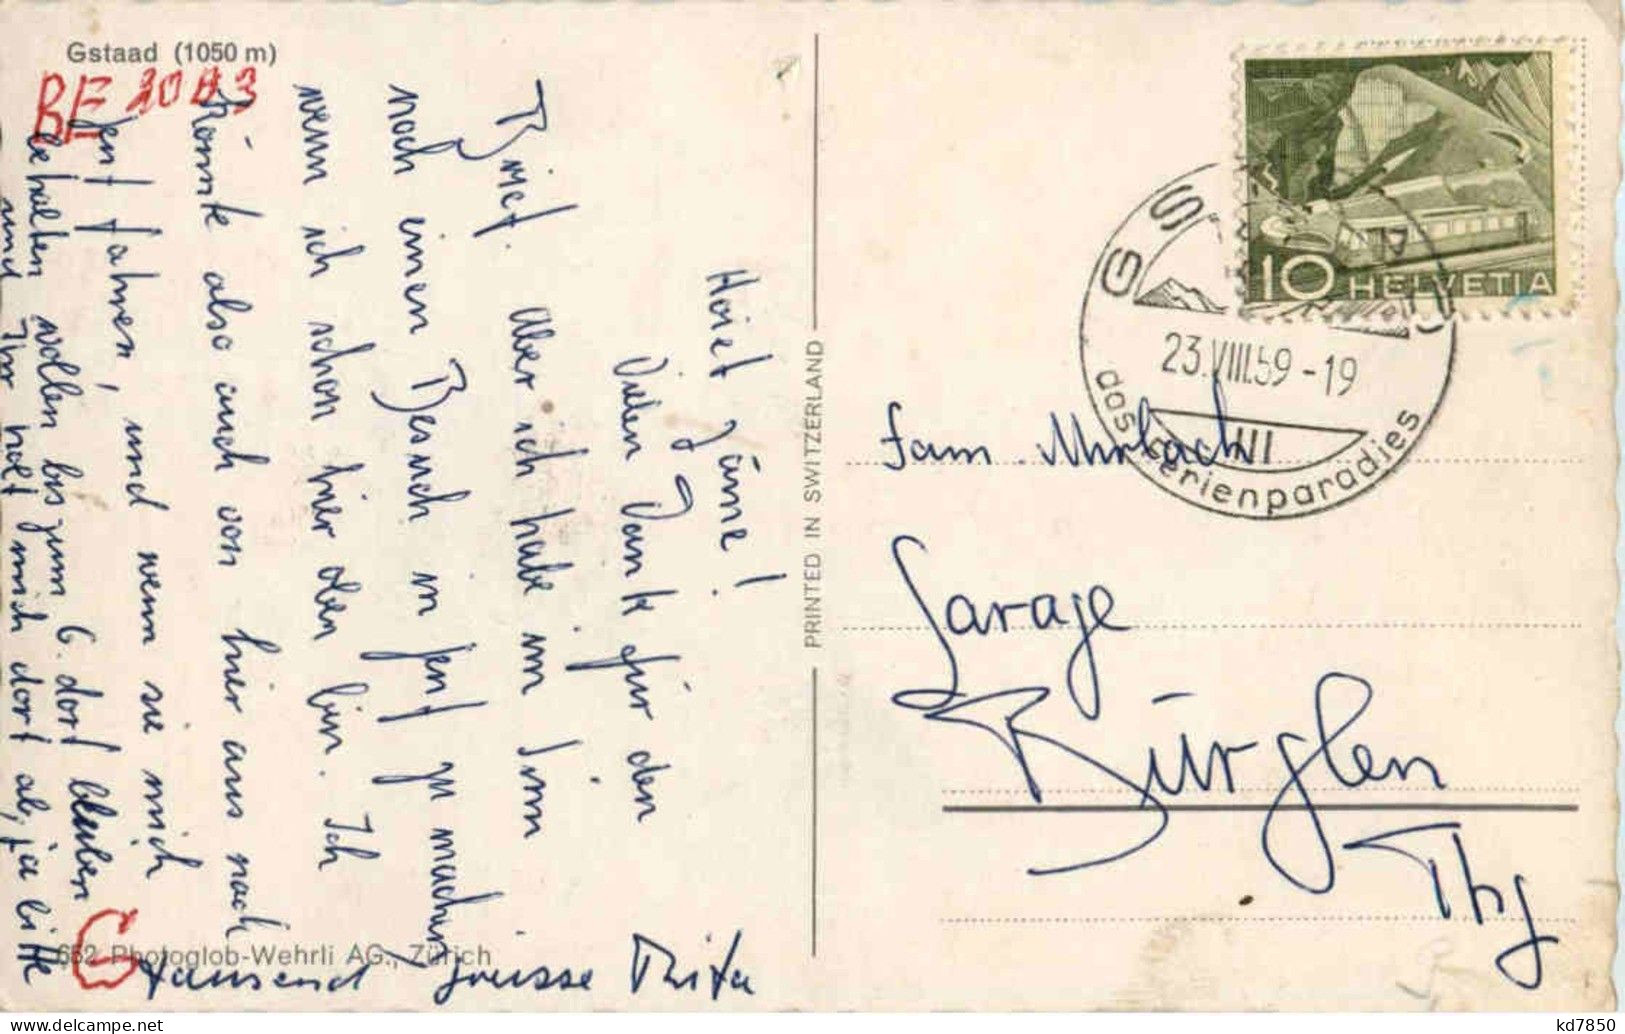 Gstaad (1050 m)
BE 2083
Hoiet zäme!
Vielen Dank für den
Brief. Aber ich habe im Sinn
noch einen Besuch in Jenf zu machen
wenn ich schon hier oben bin. Ich
könnte also auch von hier aus nach
Jenf fahren, und wenn sie mich
behalten wollen bis zum 6. dort bleiben
und Ihr holt mich dort ab, ja bitte
tausend Grüsse Rita
652 Photoglob-Wehrli AG., Zürich
G
PRINTED IN SWITZERLAND
10 HELVETIA
GSTAAD
23.VIII.59-19
III
das Ferienparadies
Fam.
Garage
Bürglen
Thg
kd7850